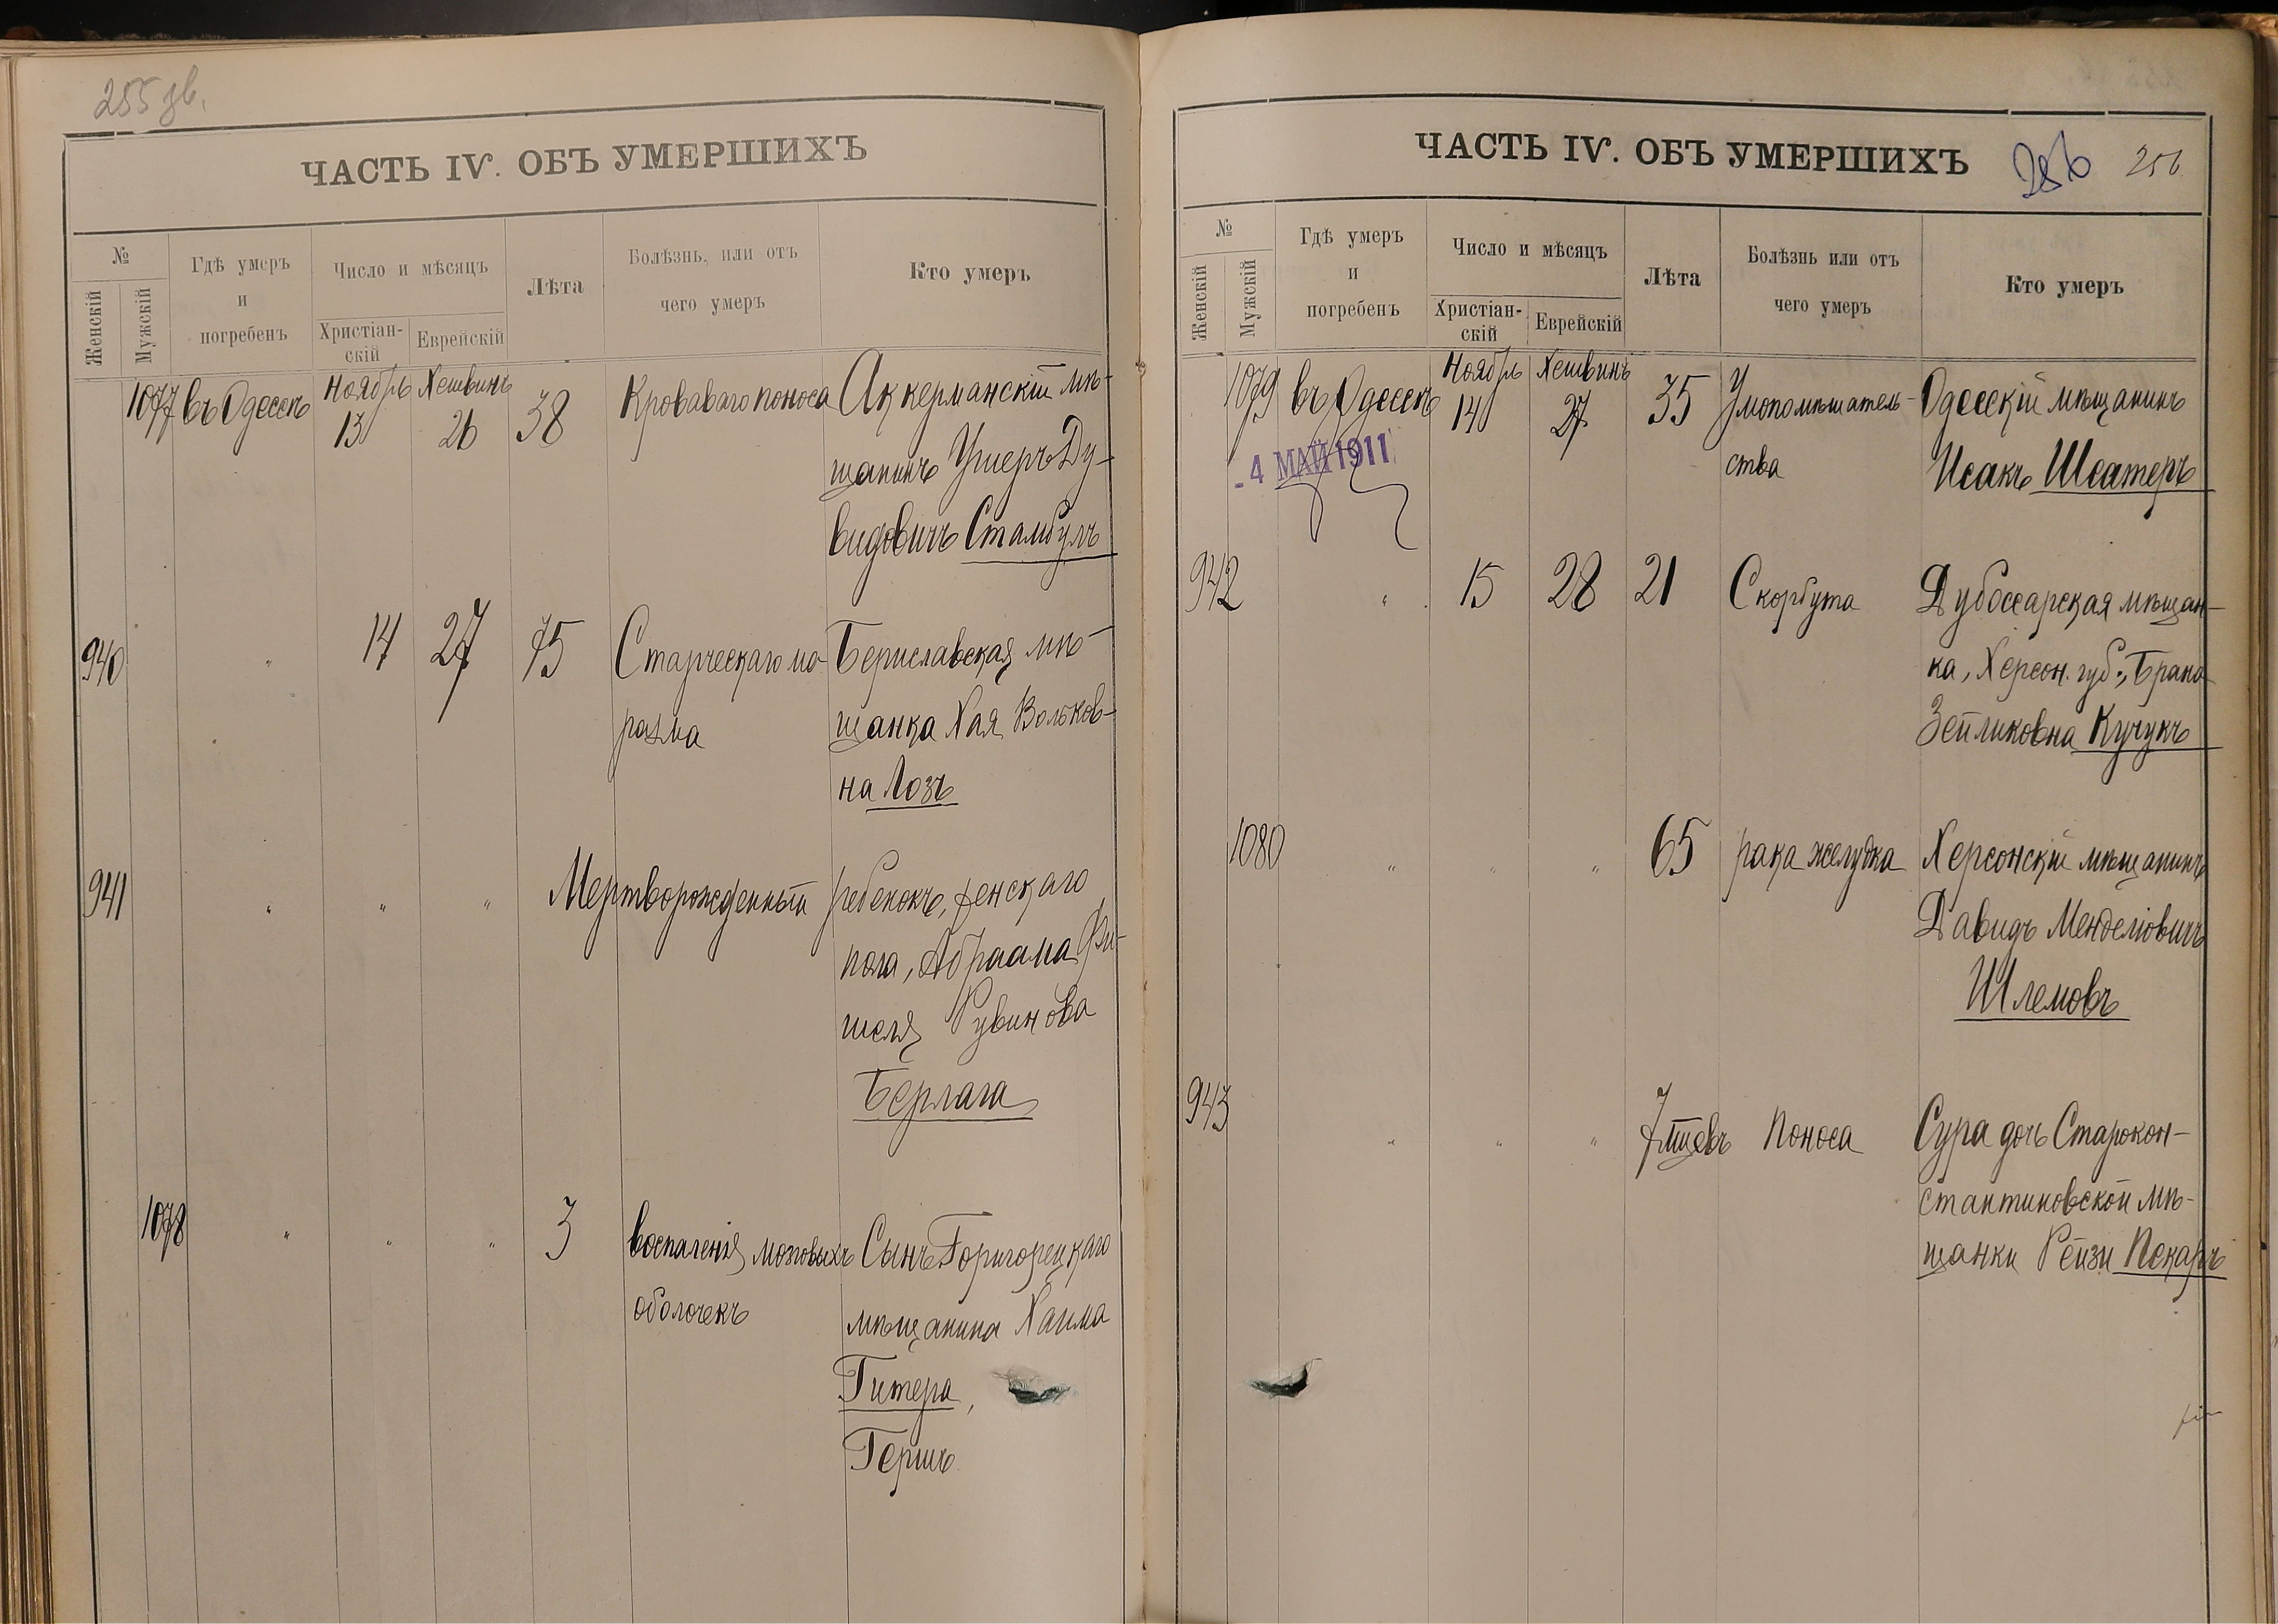 255 зв.
ЧАСТЬ IV. ОБЪ УМЕРШИХЪ
№
Женскій
Мужскій
Гдѣ умеръ
и
погребенъ
Число и мѣсяцъ
Христіан-
скій
Еврейскій
Лѣта
Болѣзнь, или отъ
чего умеръ
Кто умеръ
1077 въ Одессѣ Ноябрь 13 Хешвинъ 26 38 Кроваваго поноса Аккерманскій мѣ-
щанинъ Ушеръ Ду-
видовичъ Стамбулъ
940 " 14 27 75 Старческаго ма- Бериславская мѣ-
разма щанка Хая Вольков-
на Лозъ
941 " " " Мертворожденный ребенокъ, женскаго
пола, Абраама Фи-
шеля Рувинова
Берлага
1078 " " " 3 воспаленія мозговыхъ Сынъ Горигорецкаго
оболочекъ мѣщанина Хаима
Гитера,
Гершъ
ЧАСТЬ IV. ОБЪ УМЕРШИХЪ 256 256
№
Женскій
Мужскій
Гдѣ умеръ
и
погребенъ
Число и мѣсяцъ
Христіан-
скій
Еврейскій
Лѣта
Болѣзнь или отъ
чего умеръ
Кто умеръ
1079 въ Одессѣ Ноябрь 14 Хешвинъ 27 35 Умопомѣшатель- Одесскій мѣщанинъ
- 4 МАЙ 1911 ства Исакъ Шсатеръ
942 " 15 28 21 Скорбута Дубоссарская мѣщан-
ка, Херсон. губ., Брана
Зейликовна Кучукъ
1080 " " " 65 рака желудка Херсонскій мѣщанинъ
Давидъ Менделіовичъ
Шлемовъ
943 " " " 7 мѣцевъ Поноса Сура дочь Старокон-
стантиновской мѣ-
щанки Рейзи Пекаръ